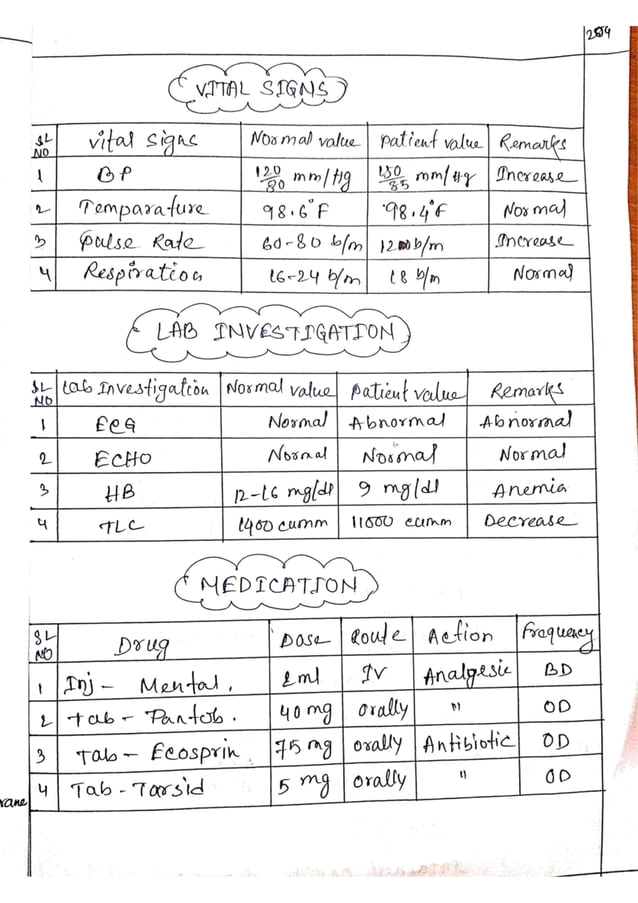 204
VITAL SIGNS
SL NO Vital Signs Normal value Patient value Remarks
1 BP 120/80 mm/Hg 150/85 mm/Hg Increase
2 Temparature 98.6°F 98.4°F Normal
3 Pulse Rate 60-80 b/m b/m Increase
4 Respiration 16-24 b/m 18 b/m Normal
LAB INVESTIGATION
SL NO Lab Investigation Normal value patient value Remarks
1 ECG Normal Abnormal Abnormal
2 ECHO Normal Normal Normal
3 HB 12-16 mg/dl 9 mg/dl Anemia
4 TLC 1400 cumm 11000 cumm Decrease
MEDICATION
SL NO Drug Dose Route Action Frequency
1 Inj - Mental. 2ml IV Analgesic BD
2 Tab - Pantob. 40 mg orally " OD
3 Tab - Ecosprin 75 mg orally Antibiotic OD
4 Tab - Torsid 5 mg orally " OD
rane